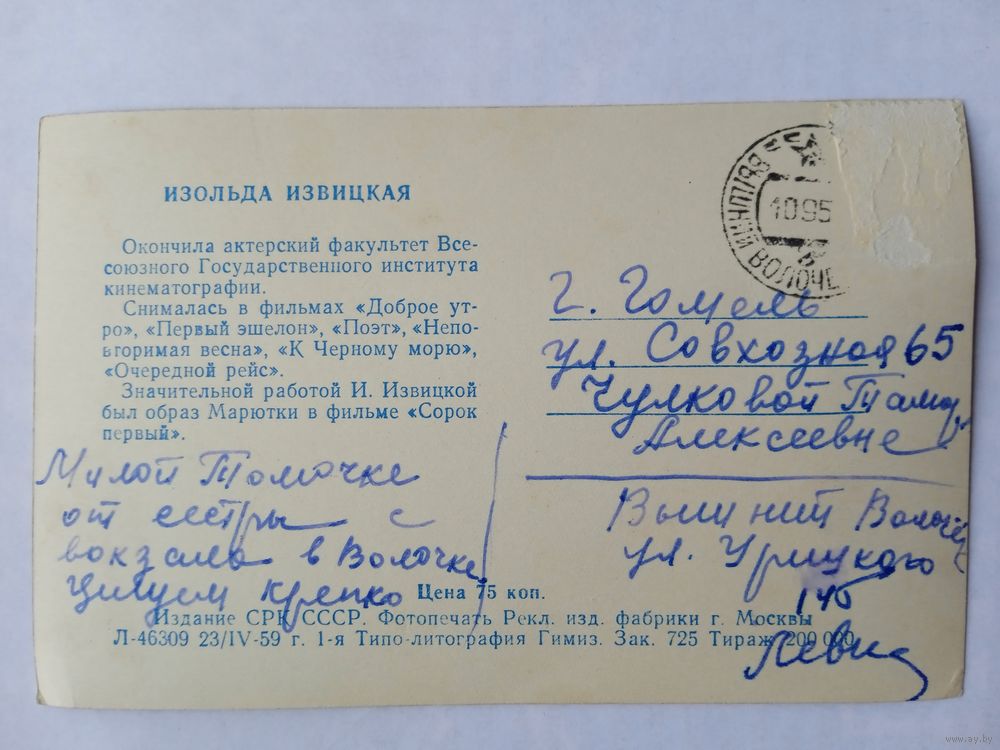 ИЗОЛЬДА ИЗВИЦКАЯ
Окончила актерский факультет Все-
союзного Государственного института
кинематографии.
Снималась в фильмах «Доброе ут-
ро», «Первый эшелон», «Поэт», «Непо-
вторимая весна», «К Черному морю»,
«Очередной рейс».
Значительной работой И. Извицкой
был образ Марютки в фильме «Сорок
первый».
Милой Томочке
от сестры с
вокзала в Волочке
Целуем крепко
Цена 75 коп.
Издание СРК СССР. Фотопечать Рекл. изд. фабрики г. Москвы
Л-46309 23/IV-59 г. 1-я Типо-литография Гимиз. Зак. 725 Тираж 200 000
ВЫШНИЙ ВОЛОЧЕ
1095
г. Гомель
ул. Совхозная 65
Чулковой Тамар
Алексеевне
Вышний Волочек
ул. Урицкого
www.ay.by